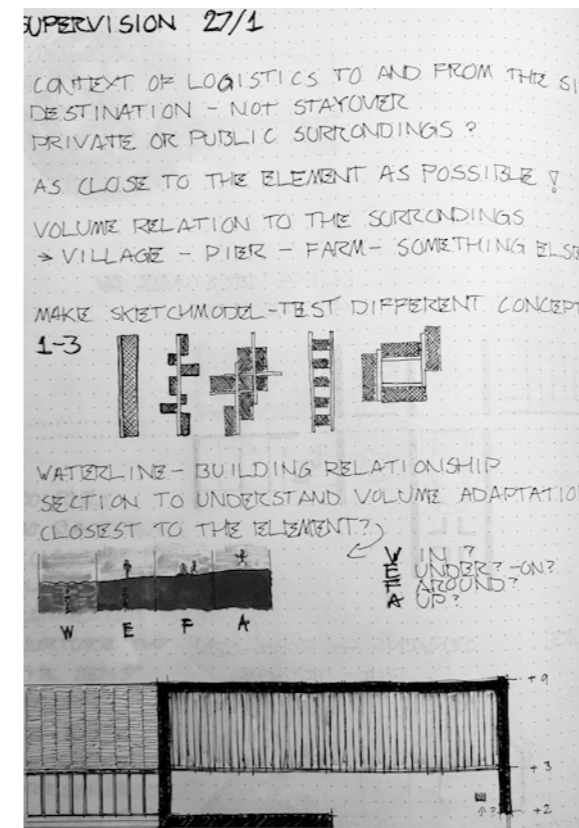 SUPERVISION 27/1
CONTEXT OF LOGISTICS TO AND FROM THE SI
DESTINATION - NOT STAYOVER
PRIVATE OR PUBLIC SURRONDINGS?
AS CLOSE TO THE ELEMENT AS POSSIBLE!
VOLUME RELATION TO THE SURRONDINGS
→ VILLAGE - PIER - FARM - SOMETHING ELSE
MAKE SKETCHMODEL - TEST DIFFERENT CONCEPT
1-3
WATERLINE - BUILDING RELATIONSHIP
SECTION TO UNDERSTAND VOLUME ADAPTATIO
CLOSEST TO THE ELEMENT?
W IN?
E UNDER? - ON?
F AROUND?
A UP?
W E F A
+9
+3
+2